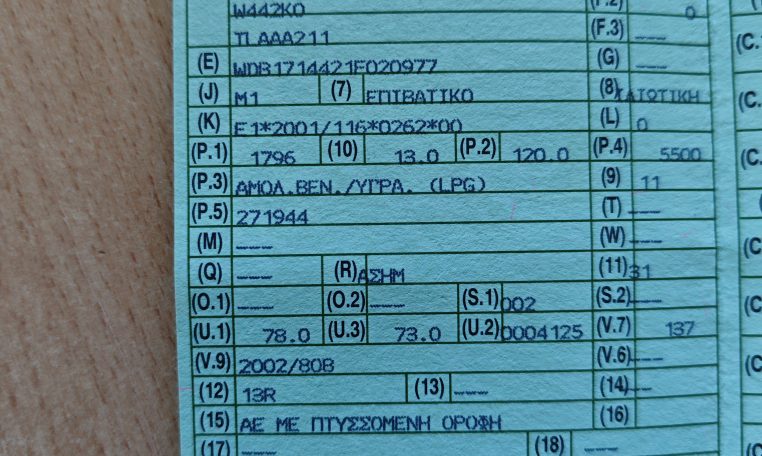 W442KO (F.2) 0
TLAAA211 (F.3) ---
(E) WDB1714421F020977 (G) ---
(J) M1 (7) ΕΠΙΒΑΤΙΚΟ (8) ΙΔΙΩΤΙΚΗ (C.
(K) E1*2001/116*0262*00 (L) 0
(P.1) 1796 (10) 13.0 (P.2) 120.0 (P.4) 5500 (C.
(P.3) ΑΜΟΛ.ΒΕΝ./ΥΓΡΑ. (LPG) (9) 11
(P.5) 271944 (T) ---
(M) --- (W) --- (C
(Q) --- (R) ΑΣΗΜ (11) 31
(O.1) --- (O.2) --- (S.1) 002 (S.2) --- (C
(U.1) 78.0 (U.3) 73.0 (U.2) 0004125 (V.7) 137
(V.9) 2002/80B (V.6) --- (C
(12) 13R (13) --- (14) ---
(15) ΑΕ ΜΕ ΠΤΥΣΣΟΜΕΝΗ ΟΡΟΦΗ (16) (C
(17) --- (18) ---